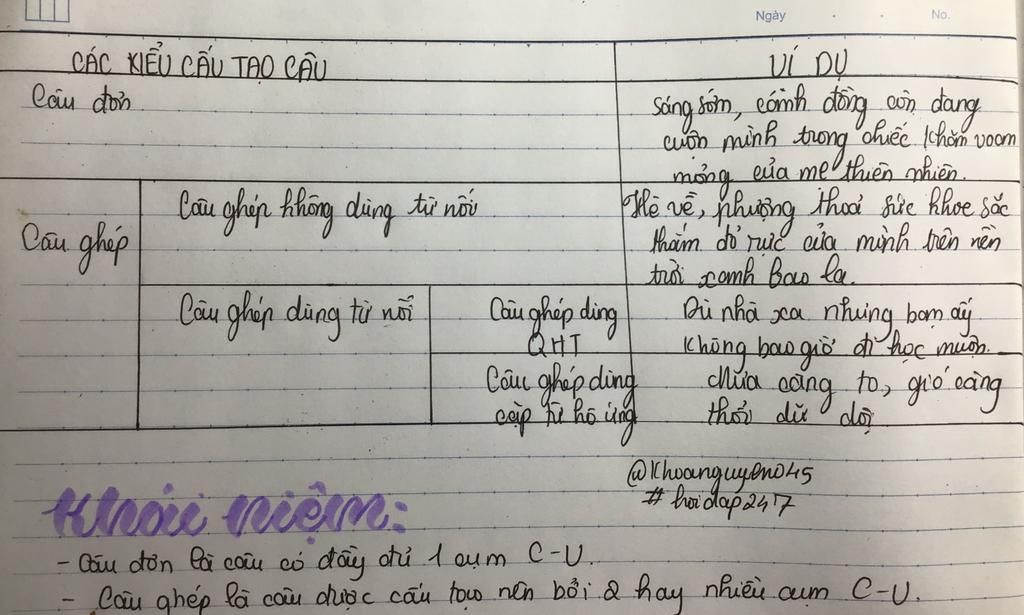 Ngày No.
CÁC KIỂU CẤU TẠO CÂU
VÍ DỤ
Câu đơn
Sáng sớm, cánh đồng còn đang
cuộn mình trong chiếc khăn voan
mỏng của mẹ thiên nhiên.
Câu ghép
Câu ghép không dùng từ nối
Hè về, phượng thoả sức khoe sắc
thắm đỏ rực của mình trên nền
trời xanh bao la.
Câu ghép dùng từ nối
Câu ghép dùng
QHT
Dù nhà xa nhưng bạn ấy
không bao giờ đi học muộn.
Câu ghép dùng
cặp từ hô ứng
Mưa càng to, gió càng
thổi dữ dội
@Khoanguyen045
#hoidap247
Khái niệm:
- Câu đơn là câu có đầy đủ 1 cụm C-V.
- Câu ghép là câu được cấu tạo nên bởi 2 hay nhiều cụm C-V.